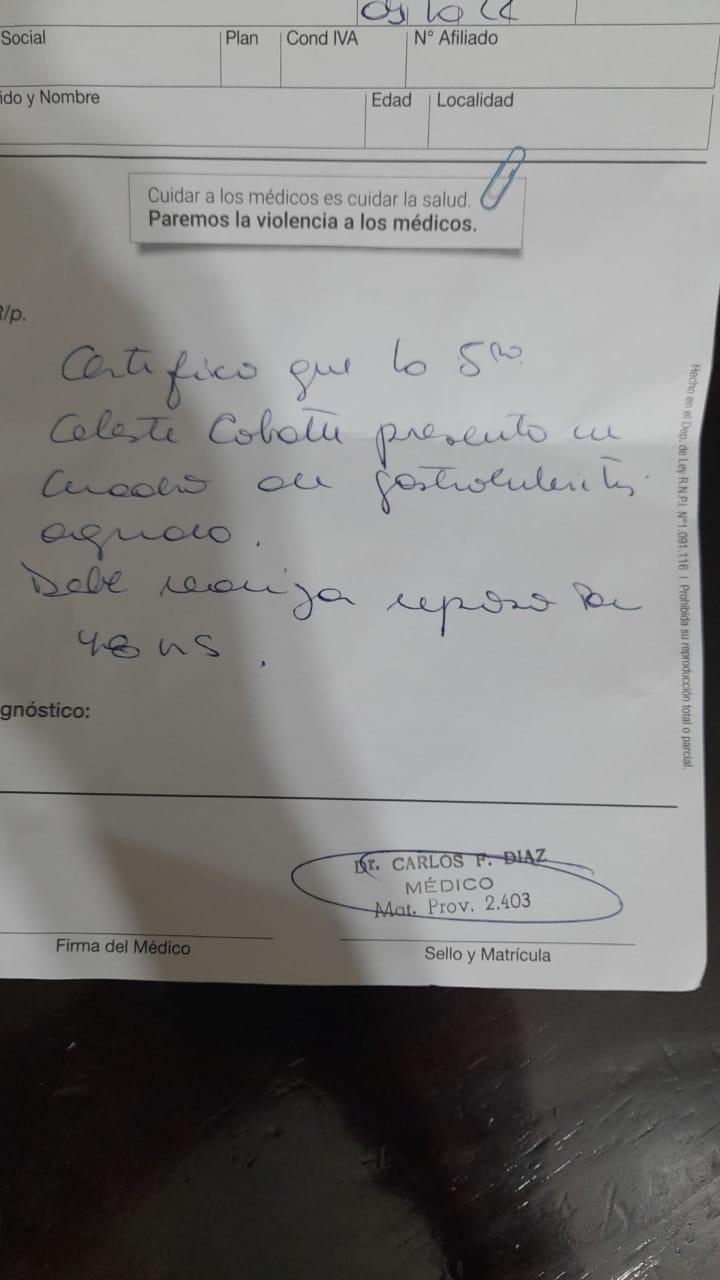 Social Plan Cond IVA N° Afiliado
ido y Nombre Edad Localidad
Cuidar a los médicos es cuidar la salud.
Paremos la violencia a los médicos.
R/p.
Certifico que la Sra
Celeste presento un
cuadro de gastroenteritis
aguda.
Debe realizar reposo por
48 hs.
gnóstico:
Dr. CARLOS F. DIAZ
MÉDICO
Mat. Prov. 2.403
Firma del Médico Sello y Matrícula
Hecho en el Dep. de Ley R.N.P.I. N°1.091.116 | Prohibida su reproducción total o parcial.